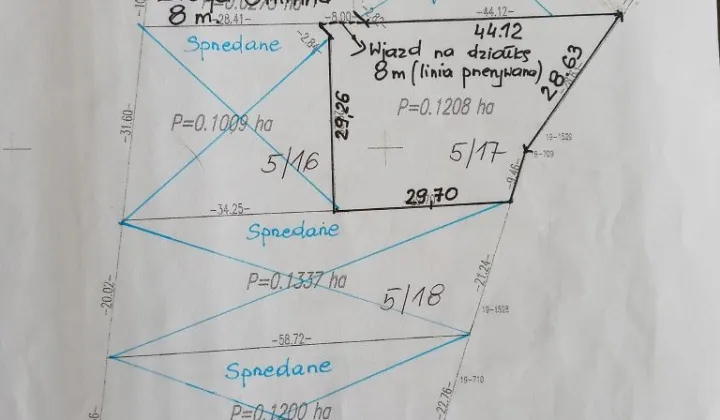 8 m.
-28.41-
-8.00-
-2.82-
-44.12-
44.12
Spredane
-2.84-
Wjazd na działkę
8 m (linia przerywana)
28,63
-31.60-
29,26
P=0.1009 ha
P=0.1208 ha
5/16
5/17
19-1529
9-709
-9.46-
-34.25-
29,70
Spredane
P=0.1337 ha
5/18
-20.02-
-21.24-
19-1528
-58.72-
Spredane
19-710
P=0.1200 ha
-22.76-